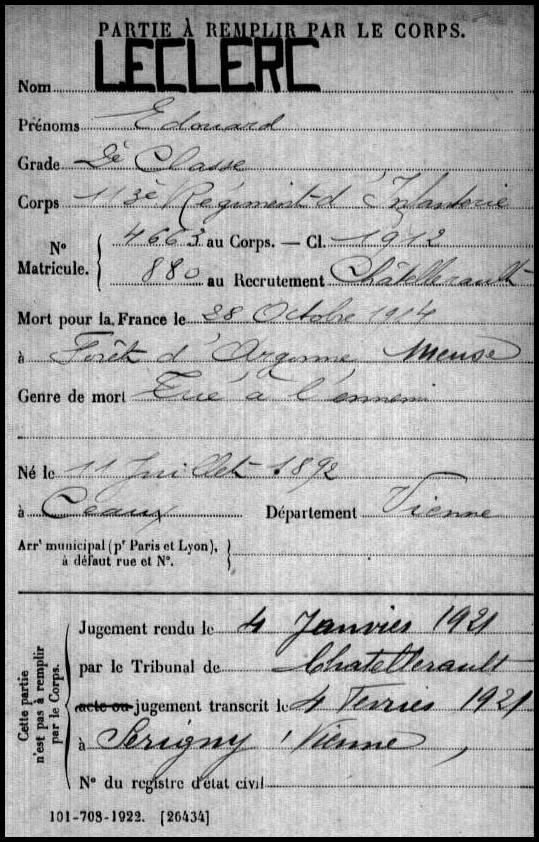 PARTIE À REMPLIR PAR LE CORPS.
Nom LECLERC
Prénoms Edouard
Grade 2è Classe
Corps 113è Régiment d'Infanterie
N° Matricule. { 4663 au Corps. — Cl. 1912
880 au Recrutement Châtellerault
Mort pour la France le 28 Octobre 1914
à Forêt d'Argonne, Meuse
Genre de mort Tué à l'ennemi
Né le 11 Juillet 1892
à Ceaux Département Vienne
Arrt municipal (pr Paris et Lyon), }
à défaut rue et N°.
Cette partie n'est pas à remplir par le Corps.
Jugement rendu le 4 Janvier 1921
par le Tribunal de Chatellerault
acte ou jugement transcrit le 4 Fevrier 1921
à Serigny, Vienne,
N° du registre d'état civil
101-708-1922. [26434]